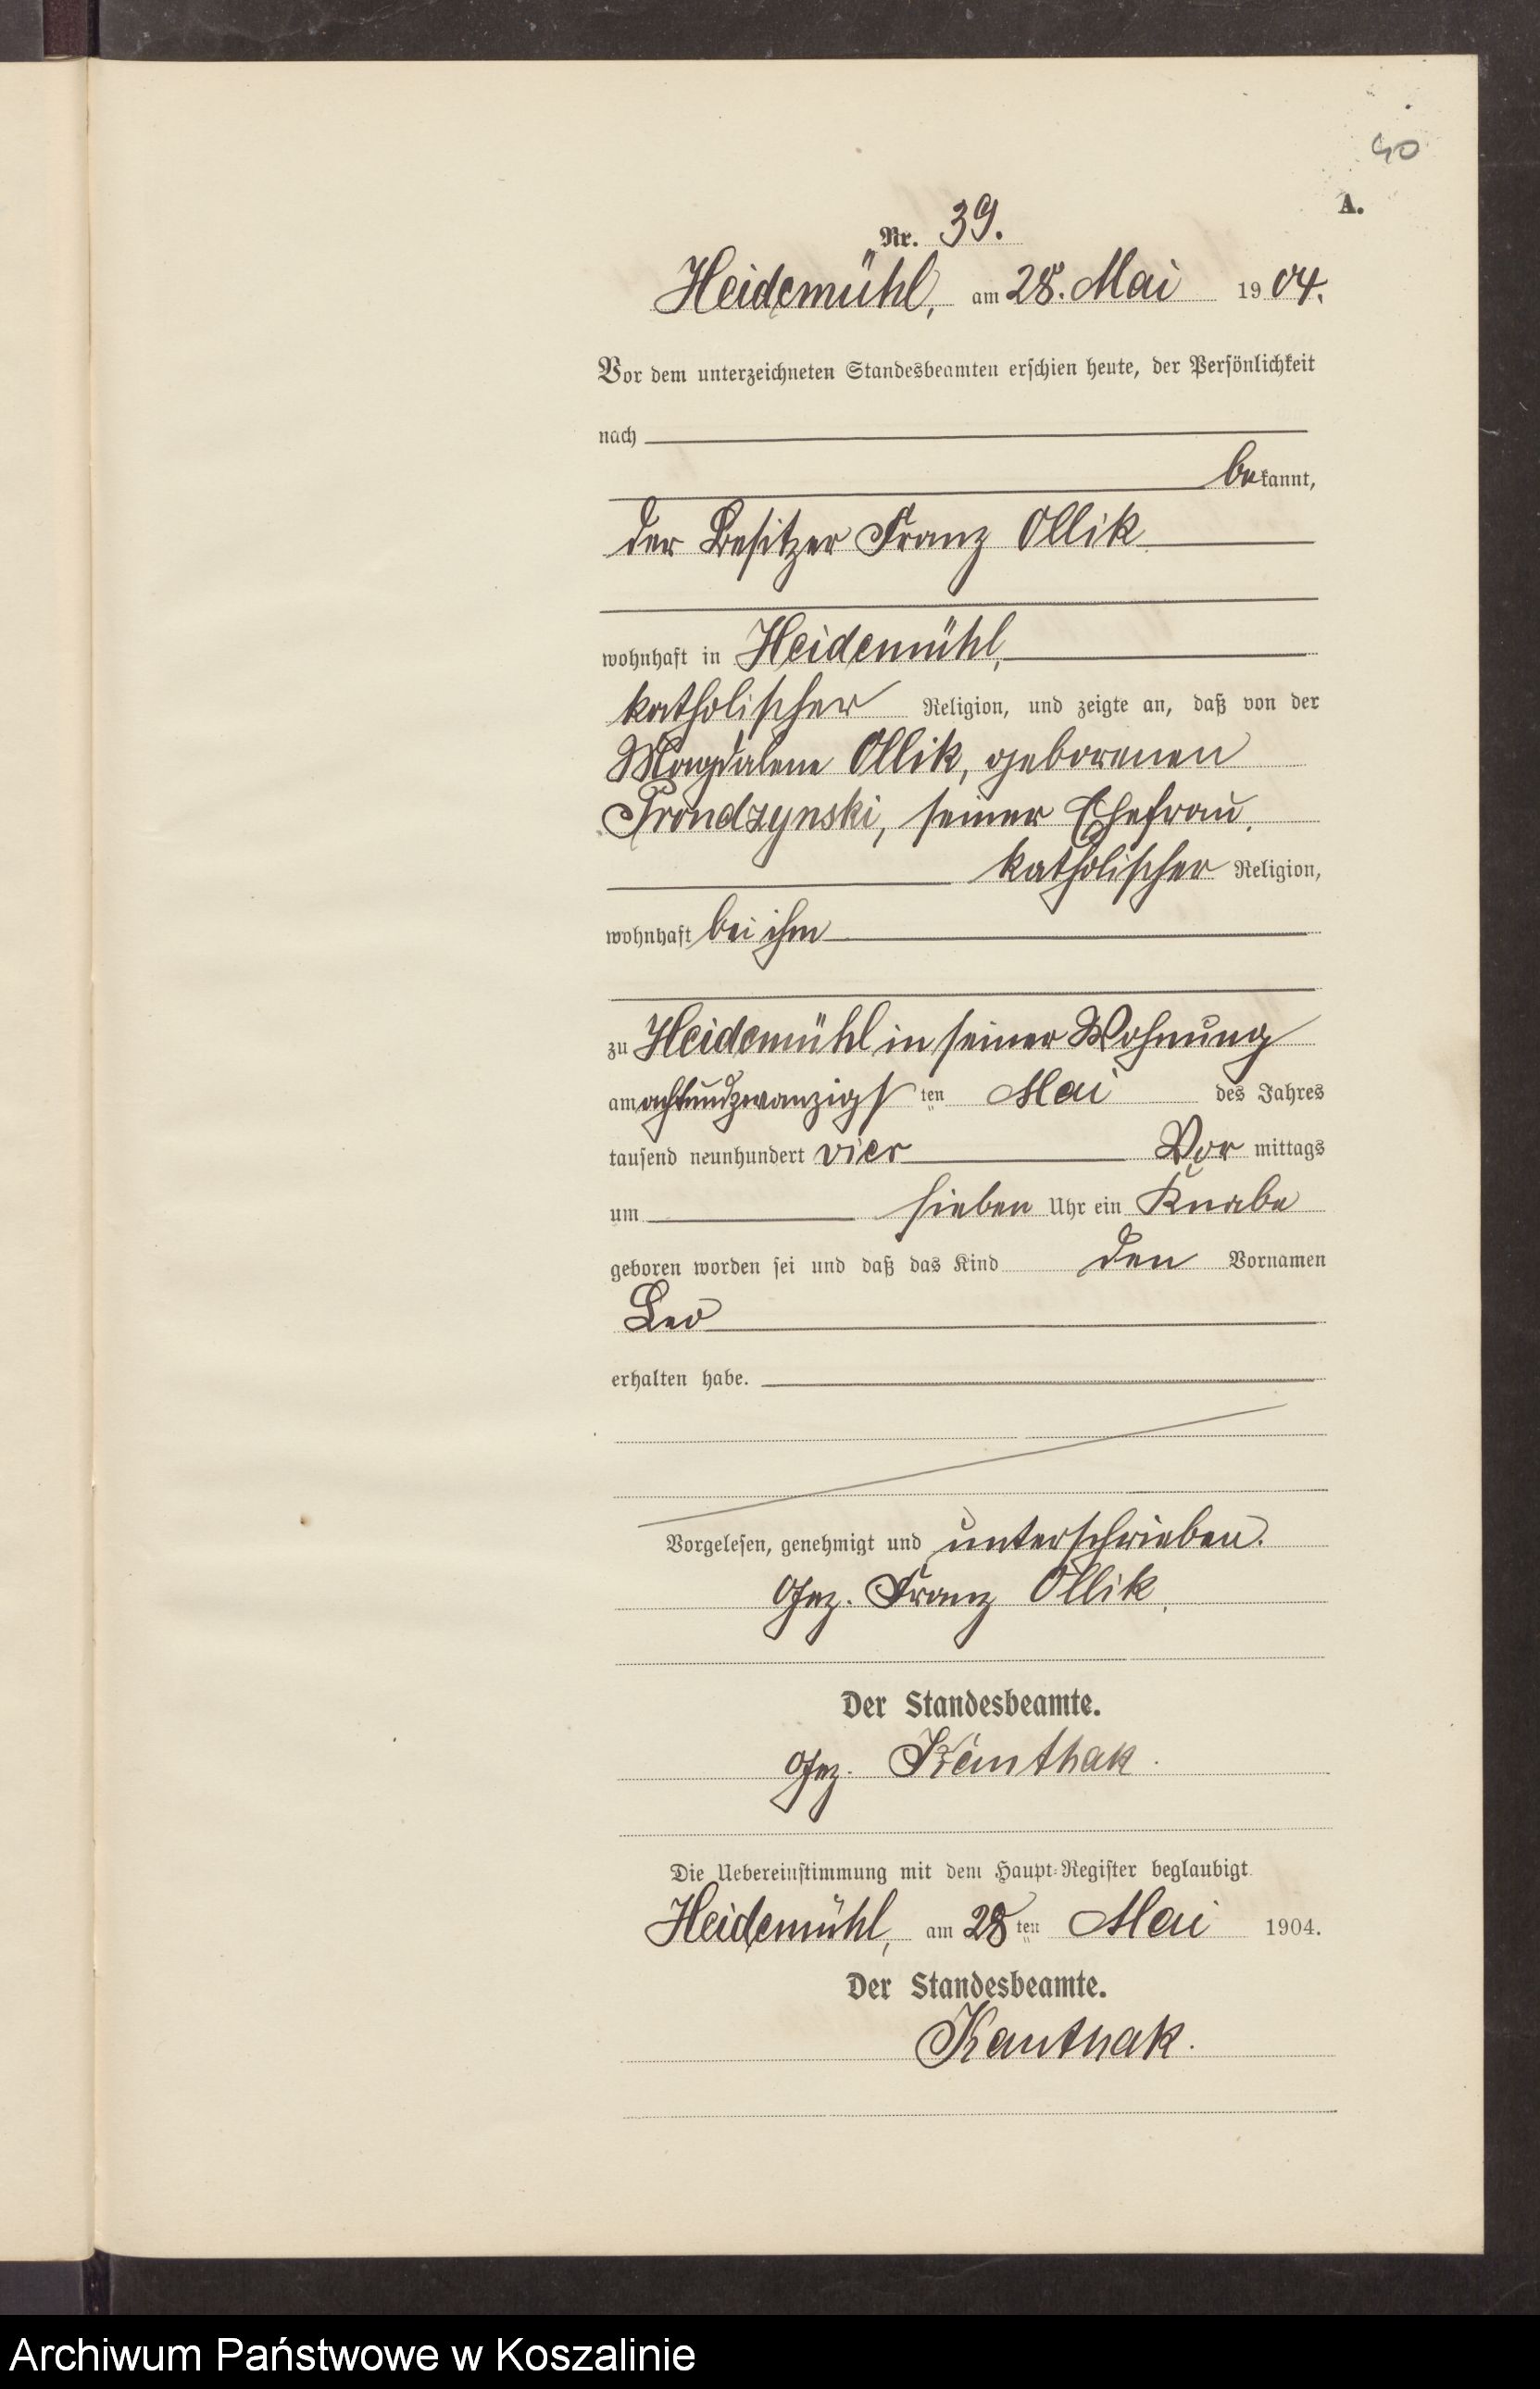 40
A.
Nr. 39.
Heidemühl, am 28. Mai 1904.
Vor dem unterzeichneten Standesbeamten erschien heute, der Persönlichkeit
nach
bekannt,
der Besitzer Franz Ollik
wohnhaft in Heidemühl,
katholischer Religion, und zeigte an, daß von der
Magdalene Ollik, geborenen
Prondzynski, seiner Ehefrau,
katholischer Religion,
wohnhaft bei ihm
zu Heidemühl in seiner Wohnung
am achtundzwanzigsten Mai des Jahres
tausend neunhundert vier Vormittags
um sieben Uhr ein Knabe
geboren worden sei und daß das Kind den Vornamen
Leo
erhalten habe.
Vorgelesen, genehmigt und unterschrieben.
Gez. Franz Ollik.
Der Standesbeamte.
Gez. Kanthak.
Die Uebereinstimmung mit dem Haupt-Register beglaubigt
Heidemühl, am 28ten Mai 1904.
Der Standesbeamte.
Kanthak.
Archiwum Państwowe w Koszalinie